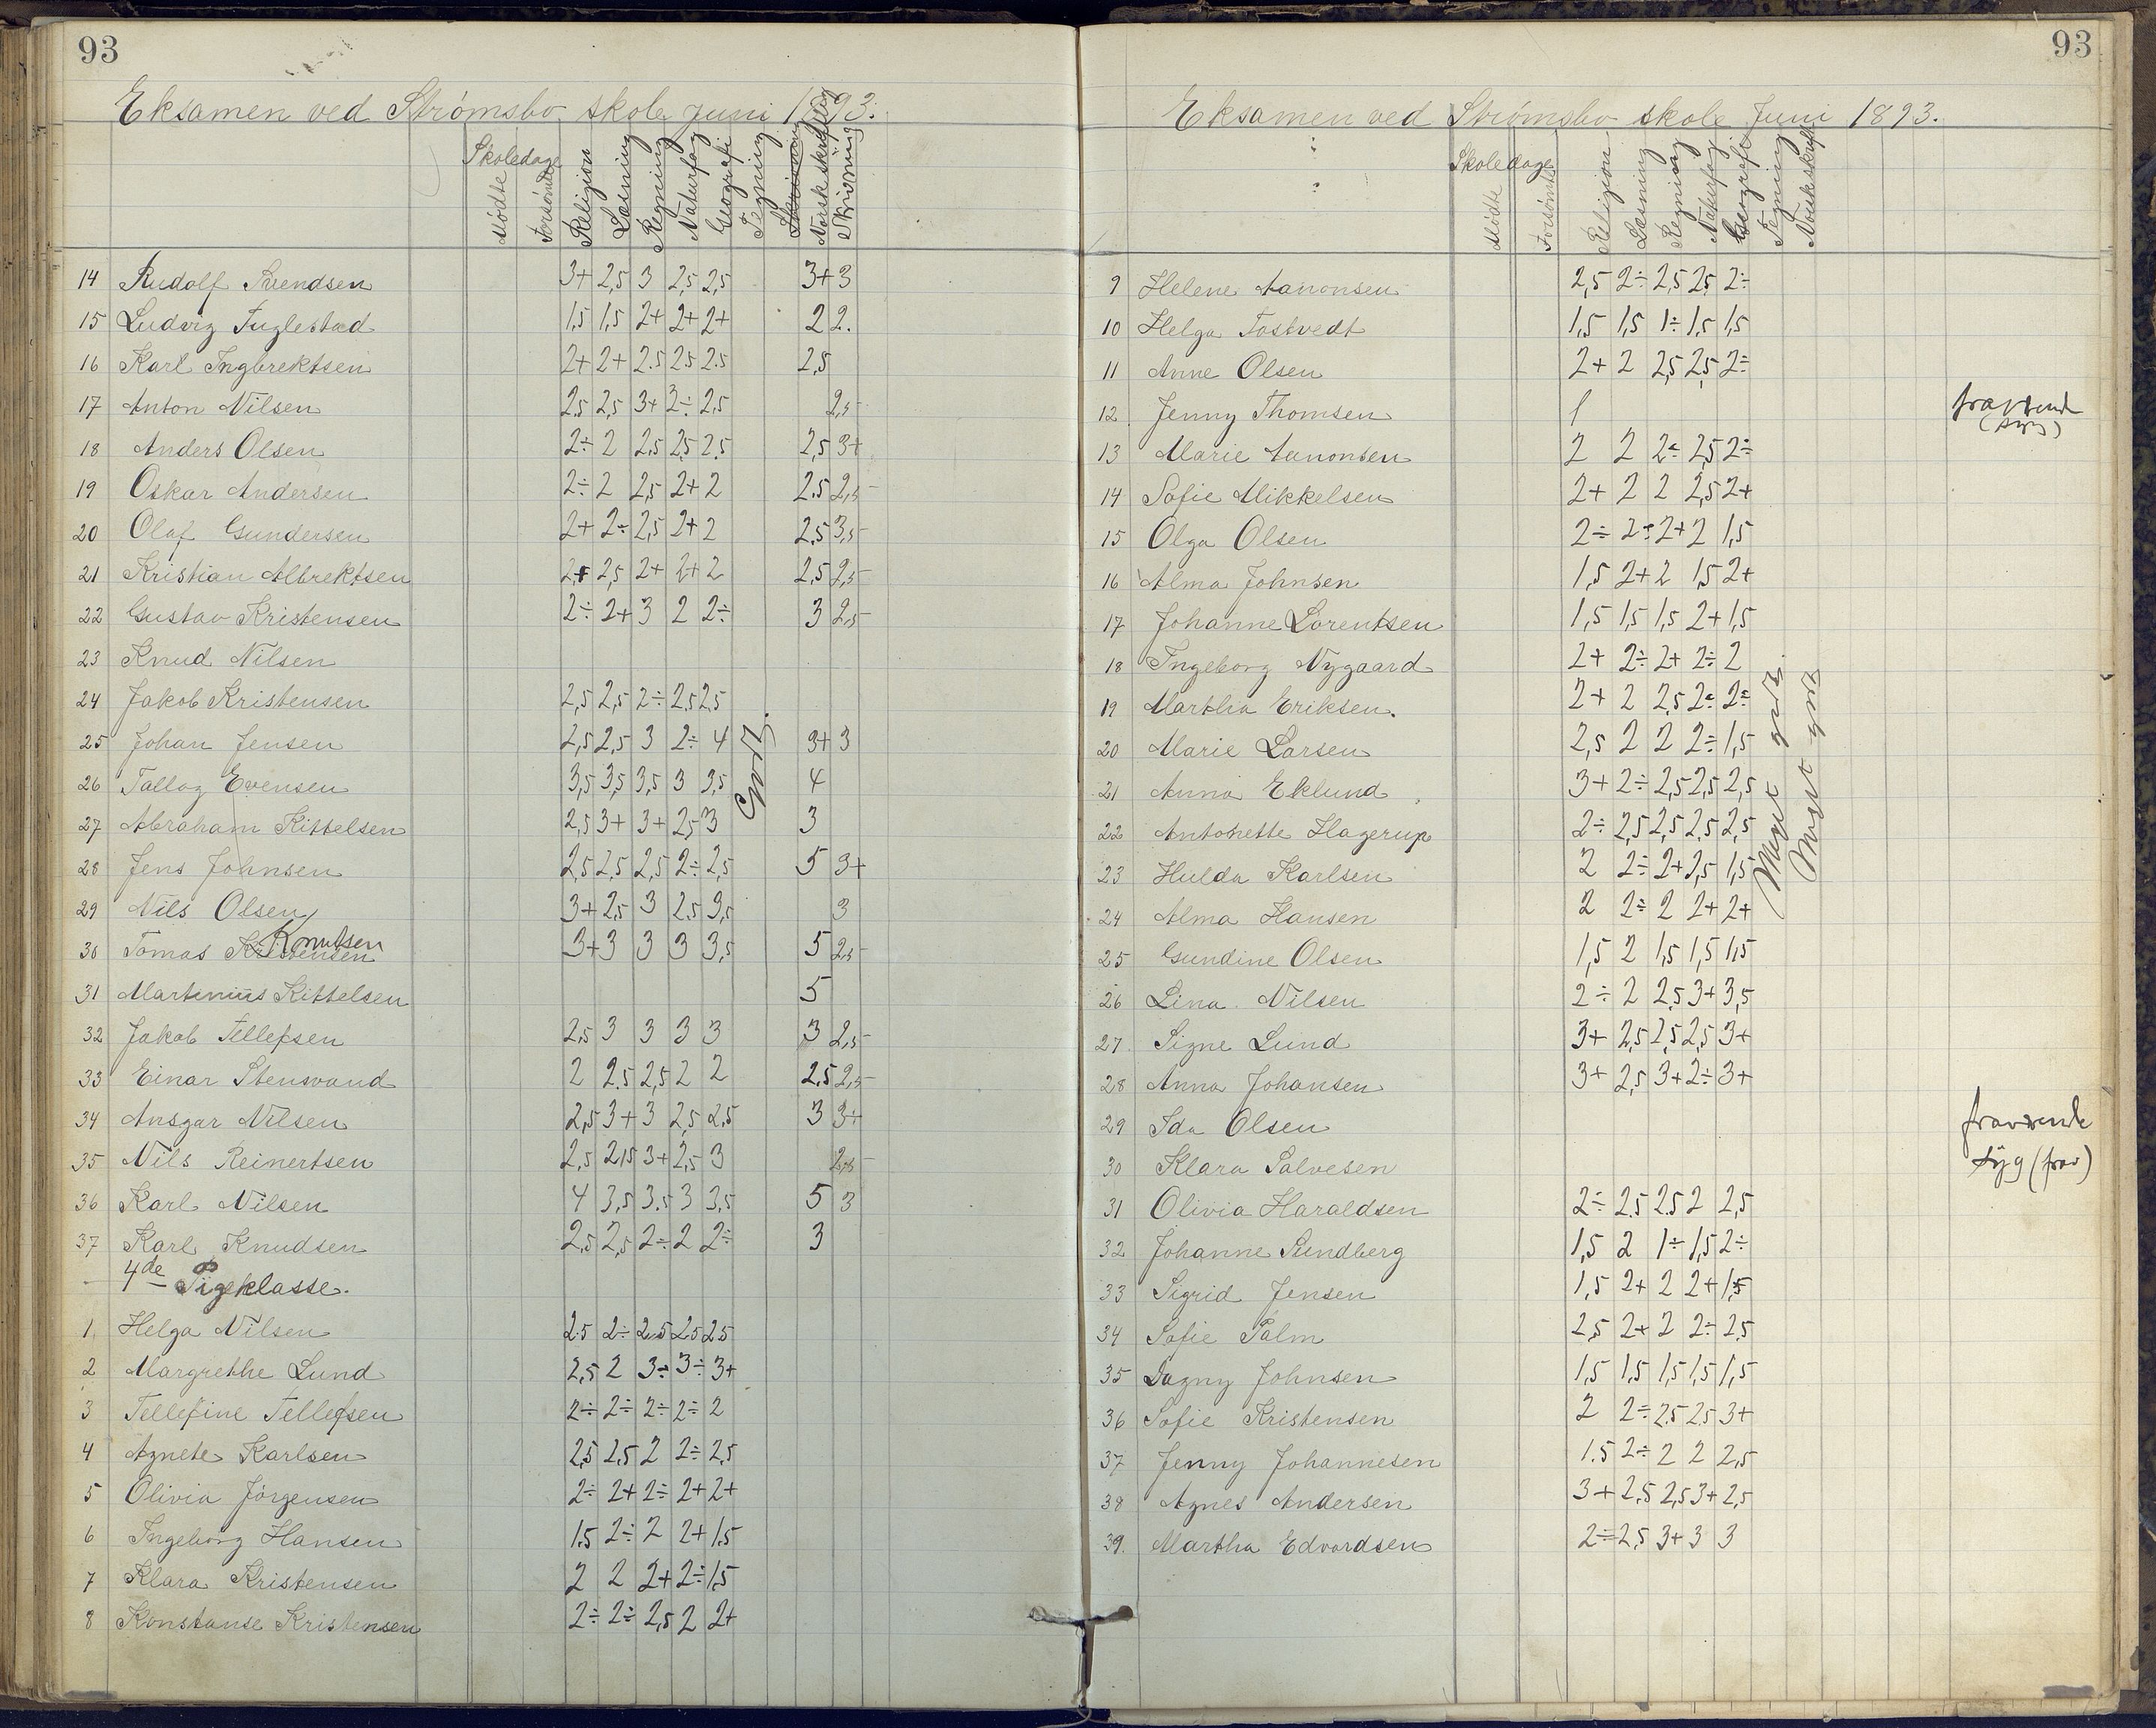 93
Eksamen ved Strømsbo skole juni 1893.
Skoledage
Mødte Forsømte Religion Læsning Regning Naturfag Geografi Tegning Norsk skriftlig Skrivning
14 Rudolf Svendsen 3+ 2,5 3 2,5 2,5 3+ 3
15 Ludvig Fuglestad 1,5 1,5 2+ 2+ 2+ 2 2.
16 Karl Ingbrektsen 2+ 2+ 2.5 2.5 2.5 2,5
17 Anton Nilsen 2,5 2,5 3+ 2÷ 2,5 2,5
18 Anders Olsen 2÷ 2 2,5 2,5 2,5 2,5 3+
19 Oskar Andersen 2÷ 2 2,5 2+ 2 2.5 2,5
20 Olaf Gundersen 2+ 2÷ 2,5 2+ 2 2,5 3,5
21 Kristian Albrektsen 2+ 2,5 2+ 2+ 2 2,5 2,5
22 Gustav Kristensen 2÷ 2+ 3 2 2÷ 3 2,5
23 Knud Nilsen
24 Jakob Kristensen 2,5 2,5 2÷ 2,5 2,5
25 Johan Jensen 2,5 2,5 3 2÷ 4 3+ 3
26 Tallag Evensen 3,5 3,5 3,5 3 3,5 4
27 Abraham Kittelsen 2,5 3+ 3+ 2,5 3 3
28 Jens Johnsen 2,5 2,5 2,5 2÷ 2,5 5 3+
29 Nils Olsen 3+ 2,5 3 2.5 3,5 3
30 Tomas Kristensen Knutsen 3+ 3 3 3 3,5 5 2,5
31 Martinius Kittelsen 5
32 Jakob Tellefsen 2,5 3 3 3 3 3 2,5
33 Einar Stensvand 2 2.5 2,5 2 2 2,5 2,5
34 Ansgar Nilsen 2,5 3+ 3 2,5 2,5 3 3+
35 Nils Reinertsen 2,5 2,5 3+ 2,5 3 2,5
36 Karl Nilsen 4 3,5 3.5 3 3,5 5 3
37 Karl Knudsen 2,5 2,5 2÷ 2 2÷ 3
Godt.
4de Pigeklasse.
1. Helga Nilsen 2.5 2÷ 2,5 2,5 2,5
2 Margrethe Lund 2,5 2 3÷ 3÷ 3+
3 Tellefine Tellefsen 2÷ 2÷ 2÷ 2÷ 2
4 Agnete Karlsen 2,5 2,5 2 2÷ 2,5
5 Olivia Jørgensen 2÷ 2+ 2÷ 2+ 2+
6 Ingeborg Hansen 1.5 2÷ 2 2+ 1.5
7 Klara Kristensen 2 2 2+ 2÷ 1,5
8 Konstanse Kristensen 2÷ 2÷ 2,5 2 2+
93
Eksamen ved Strømsbo skole Juni 1893.
Skoledage
Mødte Forsømte Religion Læsning Regning Naturfag Geografi Tegning Norsk skriftl
9 Helene Aanonsen 2,5 2÷ 2,5 2,5 2÷
10 Helga Tostvedt 1,5 1,5 1÷ 1,5 1,5
11 Anne Olsen 2+ 2 2,5 2,5 2÷
12. Jenny Thomsen fraværende (syg)
13 Marie Aanonsen 2 2 2÷ 2,5 2÷
14 Sofie Mikkelsen 2+ 2 2 2,5 2+
15 Olga Olsen 2÷ 2÷ 2+ 2 1,5
16 Alma Johnsen 1,5 2+ 2 1,5 2+
17 Johanne Lorentsen 1,5 1,5 1,5 2+ 1,5
18 Ingeborg Nygaard 2+ 2÷ 2+ 2÷ 2
19 Martha Eriksen. 2+ 2 2,5 2÷ 2÷
20 Marie Larsen 2,5 2 2 2÷ 1,5
21 Anna Eklund 3+ 2÷ 2,5 2,5 2,5
22 Antonette Hagerup 2÷ 2,5 2,5 2,5 2,5
23 Hulda Karlsen 2 2÷ 2+ 2,5 1,5
24 Alma Hansen 2 2÷ 2 2+ 2+
25 Gundine Olsen 1,5 2 1,5 1,5 1,5
26 Lina Nilsen 2÷ 2 2,5 3+ 3,5
27. Signe Lund 3+ 2,5 2,5 2,5 3+
28 Anna Johansen 3+ 2,5 3+ 2÷ 3+
29 Ida Olsen fraværende
30 Klara Salvesen Syg (frav)
31 Olivia Haraldsen 2÷ 2.5 2.5 2 2,5
32 Johanne Sundberg 1,5 2 1÷ 1,5 2÷
33 Sigrid Jensen 1,5 2+ 2 2+ 1,5
34 Sofie Palm 2,5 2+ 2 2÷ 2,5
35 Dagny Johnsen 1,5 1,5 1,5 1,5 1,5
36 Sofie Kristensen 2 2÷ 2.5 2.5 3+
37 Jenny Johannesen 1.5 2÷ 2 2 2,5
38 Agnes Andersen 3+ 2,5 2,5 3+ 2,5
39. Martha Edvardsen 2÷ 2,5 3+ 3 3
Meget godt.
Meget godt